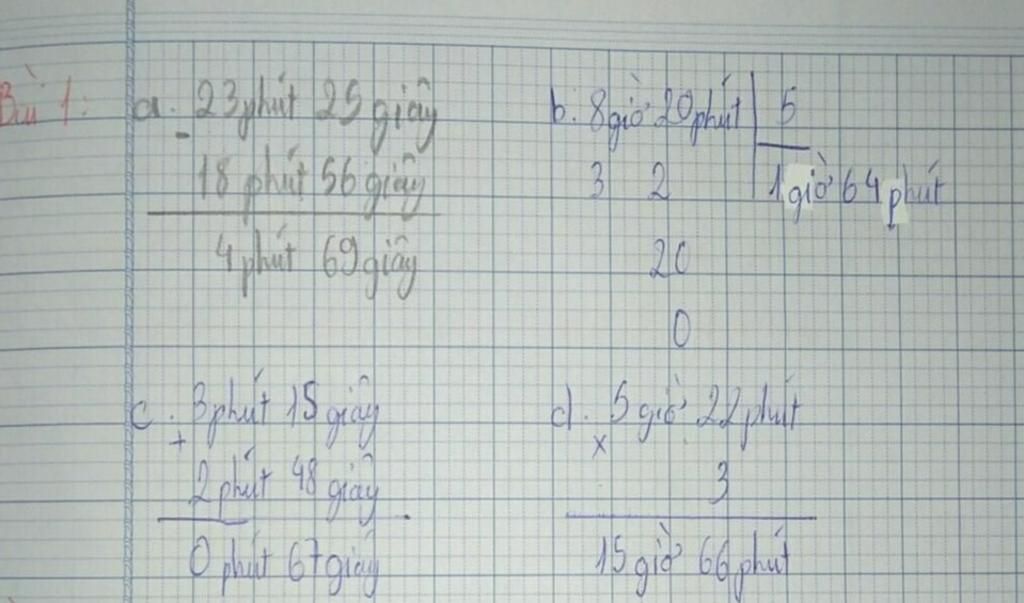 Bài 1: a. 23 phút 25 giây
-
18 phút 56 giây
4 phút 69 giây
b. 8 giờ 20 phút 5
3 2 1 giờ 64 phút
20
0
c. 3 phút 15 giây
+
2 phút 48 giây
0 phút 67 giây
d. 5 giờ 22 phút
x
3
15 giờ 66 phút